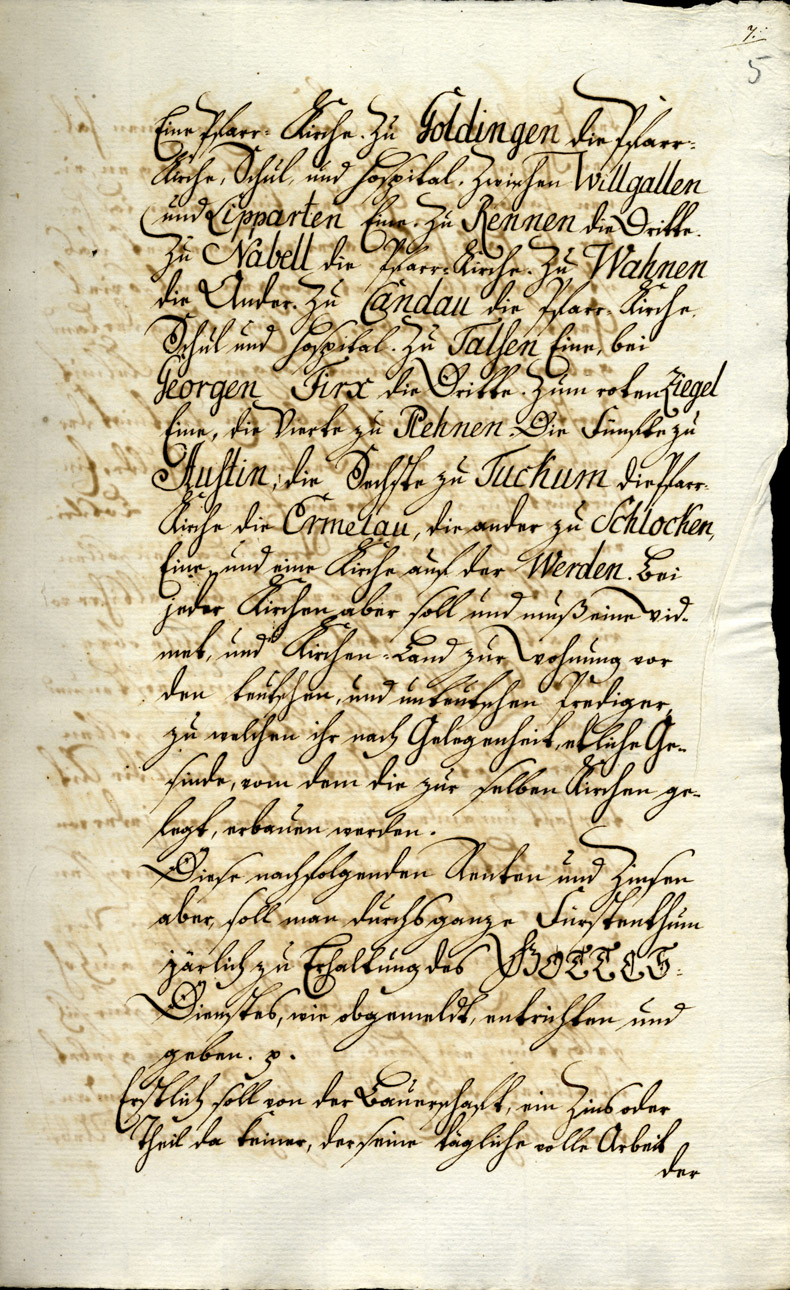 7.
5
Eine Pfarr- Kirche. Zu Goldingen die Pfarr-
Kirche, Schul, und Hospital. Zwischen Willgallen
und Lipparten Eine. Zu Rennen die Dritte.
Zu Nabell die Pfarr-Kirche. Zu Wahnen
die Ander. Zu Candau die Pfarr-Kirche,
Schul und Hospital. Zu Talsen Eine, bei
Georgen Firx die Dritte. Zum roten Ziegel
Eine, die Vierte zu Rehnen. Die Fünfte zu
Austin, die Sechste zu Tuckum die Pfarr-
Kirche die Ermelau, die ander zu Schlocken,
Eine, und eine Kirche auf der Werden. Bei
jeder Kirchen aber soll und muß eine Wid-
met, und Kirchen-Land zur Wohnung vor
den teutschen, und unteutschen Prediger,
zu welchen ihr nach Gelegenheit, etliche Ge-
sinde, vom dem die zur selben Kirchen ge-
legt, erbauen werden.
Diese nachfolgenden Renten und Zinsen
aber, soll man durchs ganze Fürstenthum
järlich zu Erhaltung des GOTTES-
Dienstes, wie obgemeldt, entrichten und
geben. p.
Erstlich soll von der Bauerschaft, ein Zins oder
Theil da keiner, der seine tägliche volle Arbeit
der